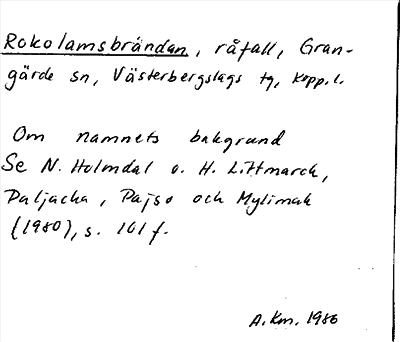 Rokolamsbrändan, råfall, Gran-
gärde sn, Västerbergslags tg, Kopp.l.
Om namnets bakgrund
Se N. Holmdal o. H. Littmarck,
Paljacka, Pajso och Mylimak
(1980), s. 101 f.
A.Km. 1986